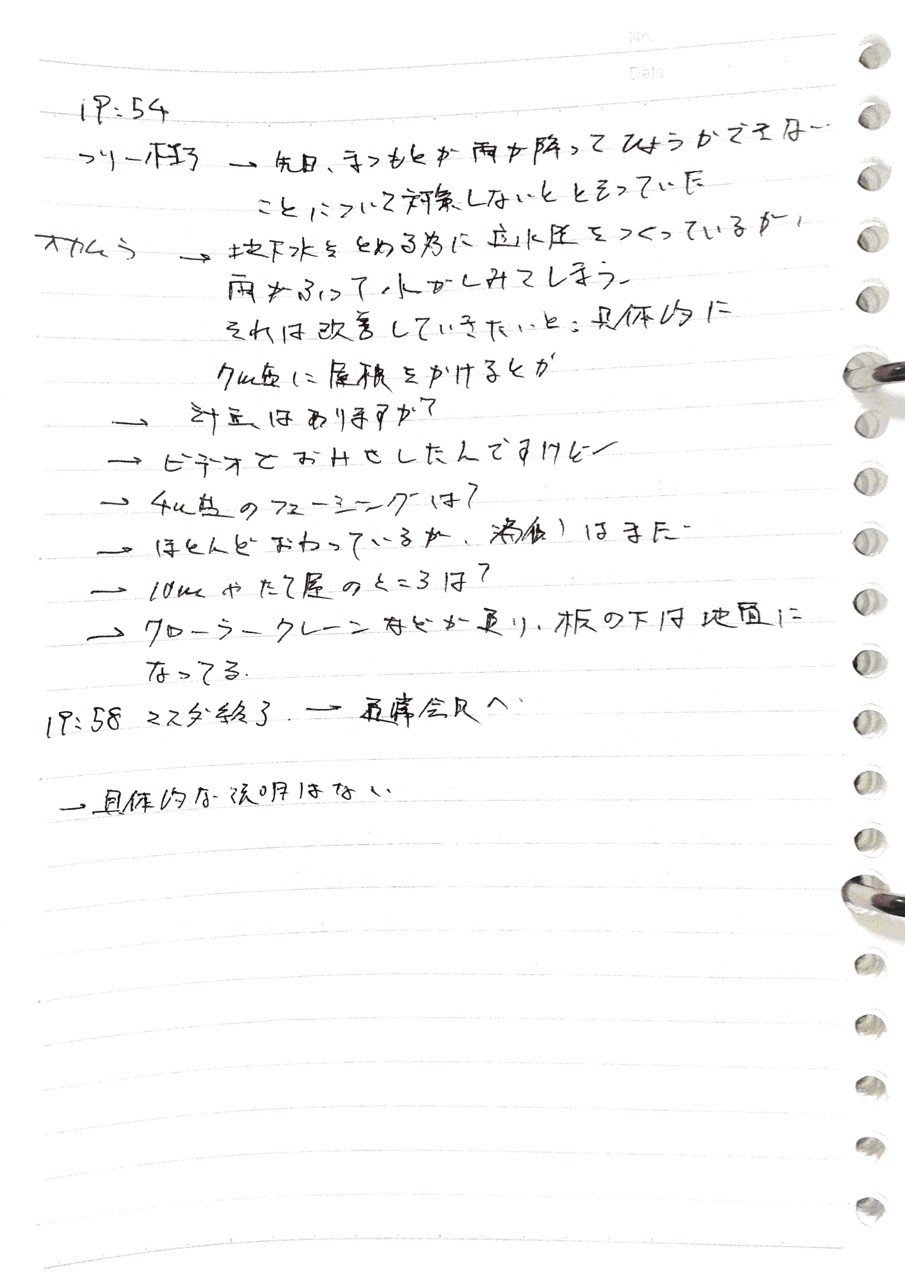 No.
Date
19:54
フリー木野 → 先日、まつもとが雨が降ってひょうかできない
ことについて対象しないととそっていた
オカムラ → 地下水をとめる為に立水圧をつくっているが、
雨がふって水がしみてしまう。
それは改善していきたいと:具体的に
7m盤に屋根をかけるとか
→ 計画はありますか?
→ ビデオでおみせしたんですけどー
→ 4m盤のフェーシングは?
→ ほとんどおわっているが、はまだ
→ 10mやたて屋のところは?
→ クローラークレーンなどが通り、板の下は地面に
なってる.
19:58 マスダ終了. → 会見へ.
→ 具体的な説明はない